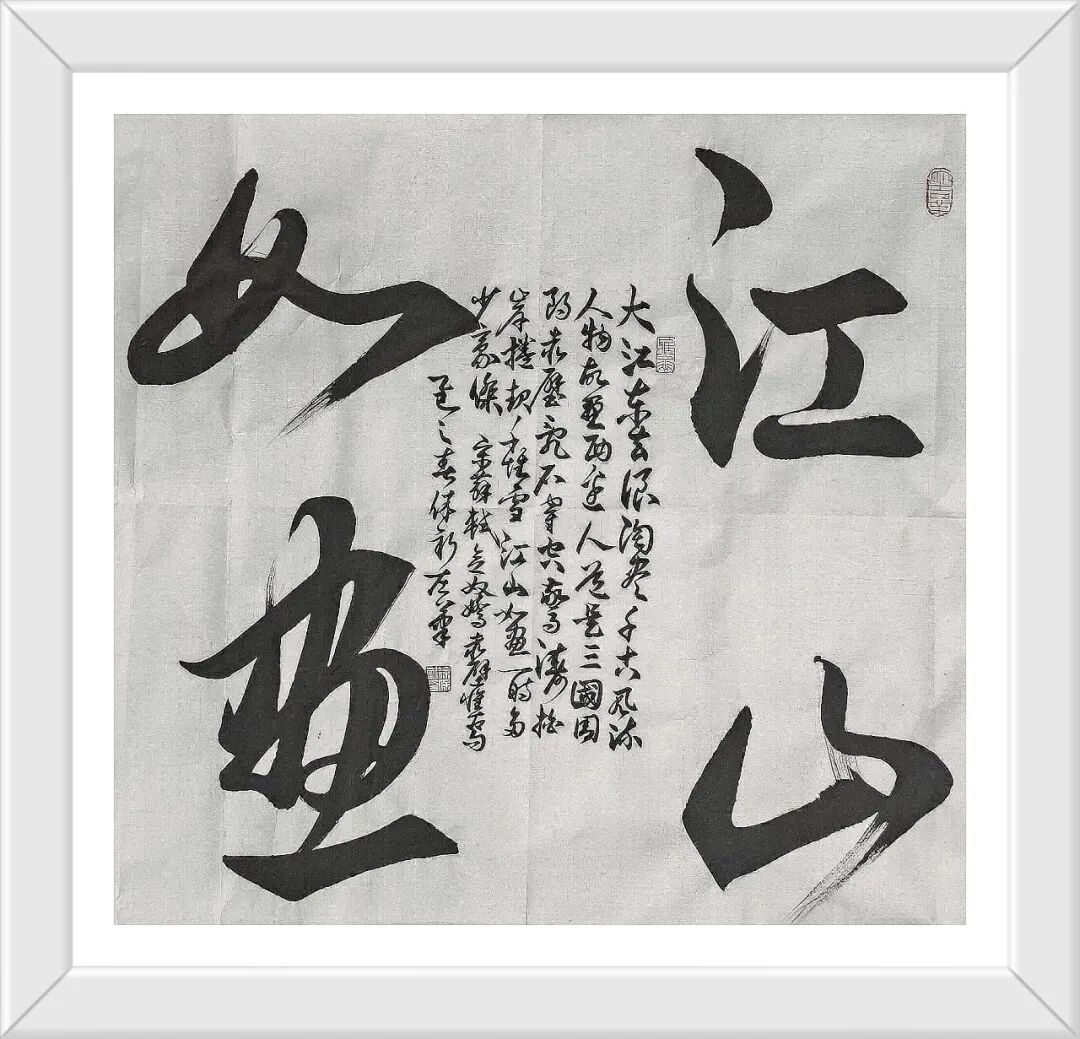 江山
如畫
大江東去浪淘尽千古風流
人物故壘西邊人道是三國周
郎赤壁亂石穿空驚濤拍
岸捲起千堆雪江山如畫一時多
少豪傑 宋蘇軾念奴嬌赤壁懷古
之春